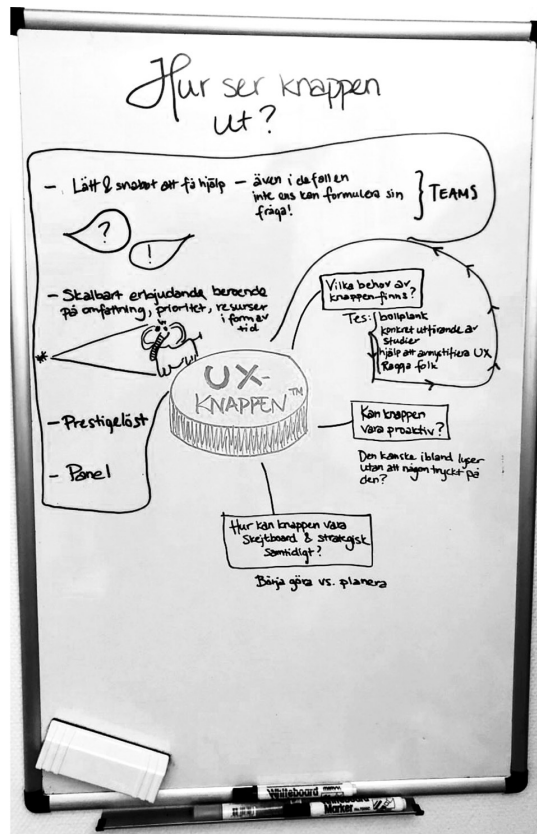 Hur ser knappen
ut?
- Lätt & snabbt att få hjälp - även i de fall en
inte ens kan formulera sin
fråga!
} TEAMS
?
!
- Skalbart erbjudande beroende
på omfattning, prioritet, resurser
i form av
tid
*
- Prestigelöst
- Panel
UX-
KNAPPEN™
Vilka behov av
knappen finns?
Tes: bollplank
konkret utförande av
studier
hjälp att avmystifiera UX
Ragga folk
Kan knappen
vara proaktiv?
Den kanske ibland lyser
utan att någon tryckt på
den?
Hur kan knappen vara
Skejtboard & strategisk
samtidigt?
Börja göra vs. planera
Whiteboard
Whiteboard
Marker